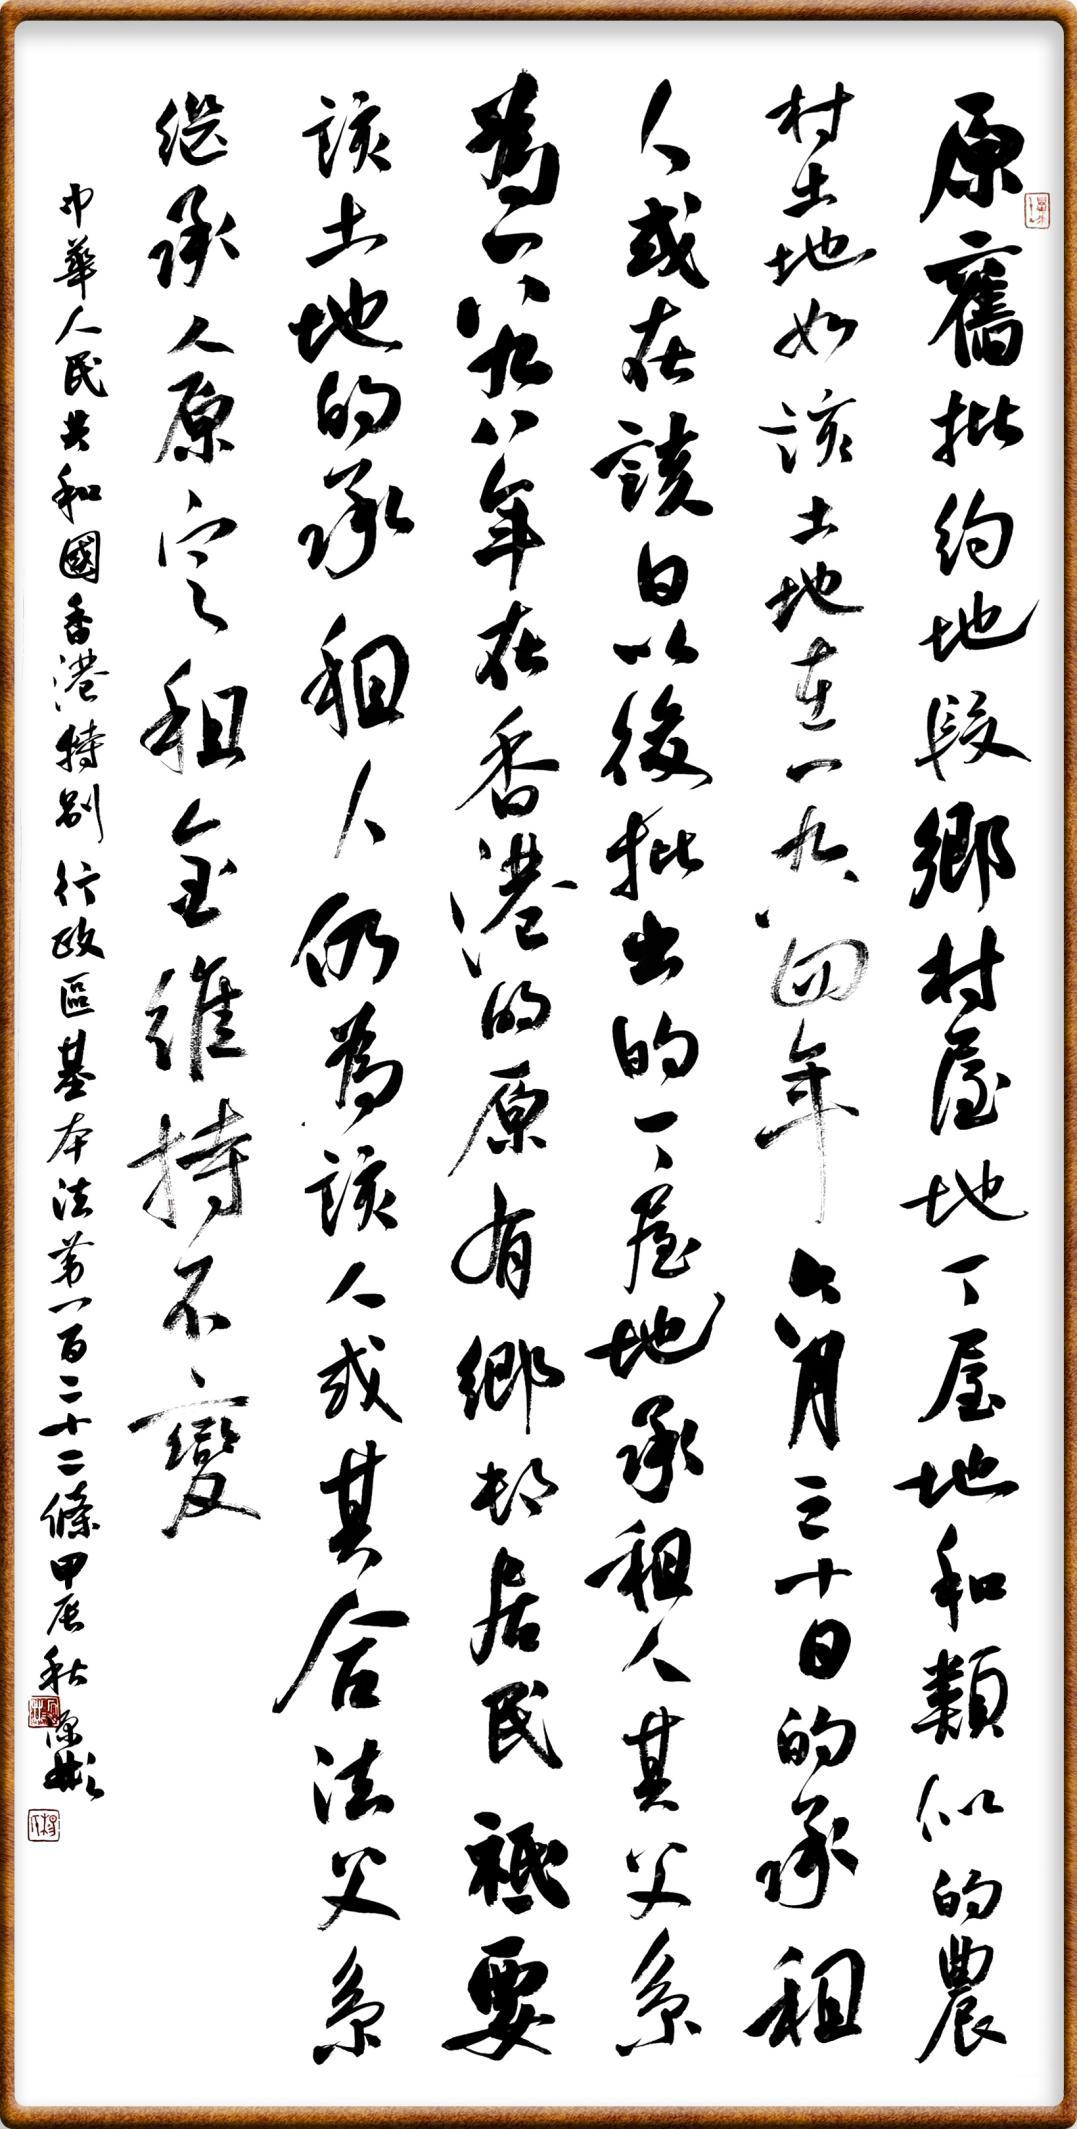 原舊批約地段鄉村屋地丁屋地和類似的農
村土地如該土地在一九八四年六月三十日的承租
人或在該日以後批出的丁屋地承租人其父系
為一八九八年在香港的原有鄉村居民祗要
該土地的承租人仍為該人或其合法父系
繼承人原定租金維持不變
中華人民共和國香港特別行政區基本法第一百二十二條甲辰秋源彬